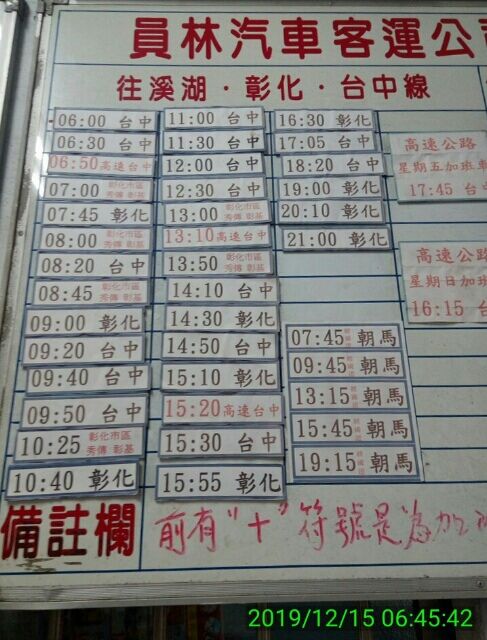 員林汽車客運公司
往溪湖·彰化·台中線
06:00 台中
06:30 台中
06:50 高速台中
07:00 彰化市區 秀傳 彰基
07:45 彰化
08:00 彰化市區 秀傳 彰基
08:20 台中
08:45 彰化市區 秀傳 彰基
09:00 彰化
09:20 台中
09:40 台中
09:50 台中
10:25 彰化市區 秀傳 彰基
10:40 彰化
11:00 台中
11:30 台中
12:00 台中
12:30 台中
13:00 彰化市區 秀傳 彰基
13:10 高速台中
13:50 台中
14:10 台中
14:30 彰化
14:50 台中
15:10 彰化
15:20 高速台中
15:30 台中
15:55 彰化
16:30 彰化
17:05 台中
18:20 台中
19:00 彰化
20:10 彰化
21:00 彰化
07:45 朝馬
09:45 朝馬
13:15 朝馬
15:45 朝馬
19:15 朝馬
高速公路
星期五加班車
17:45 台
高速公路
星期日加班
16:15 台
備註欄
前有"十"符號是為加
2019/12/15 06:45:42